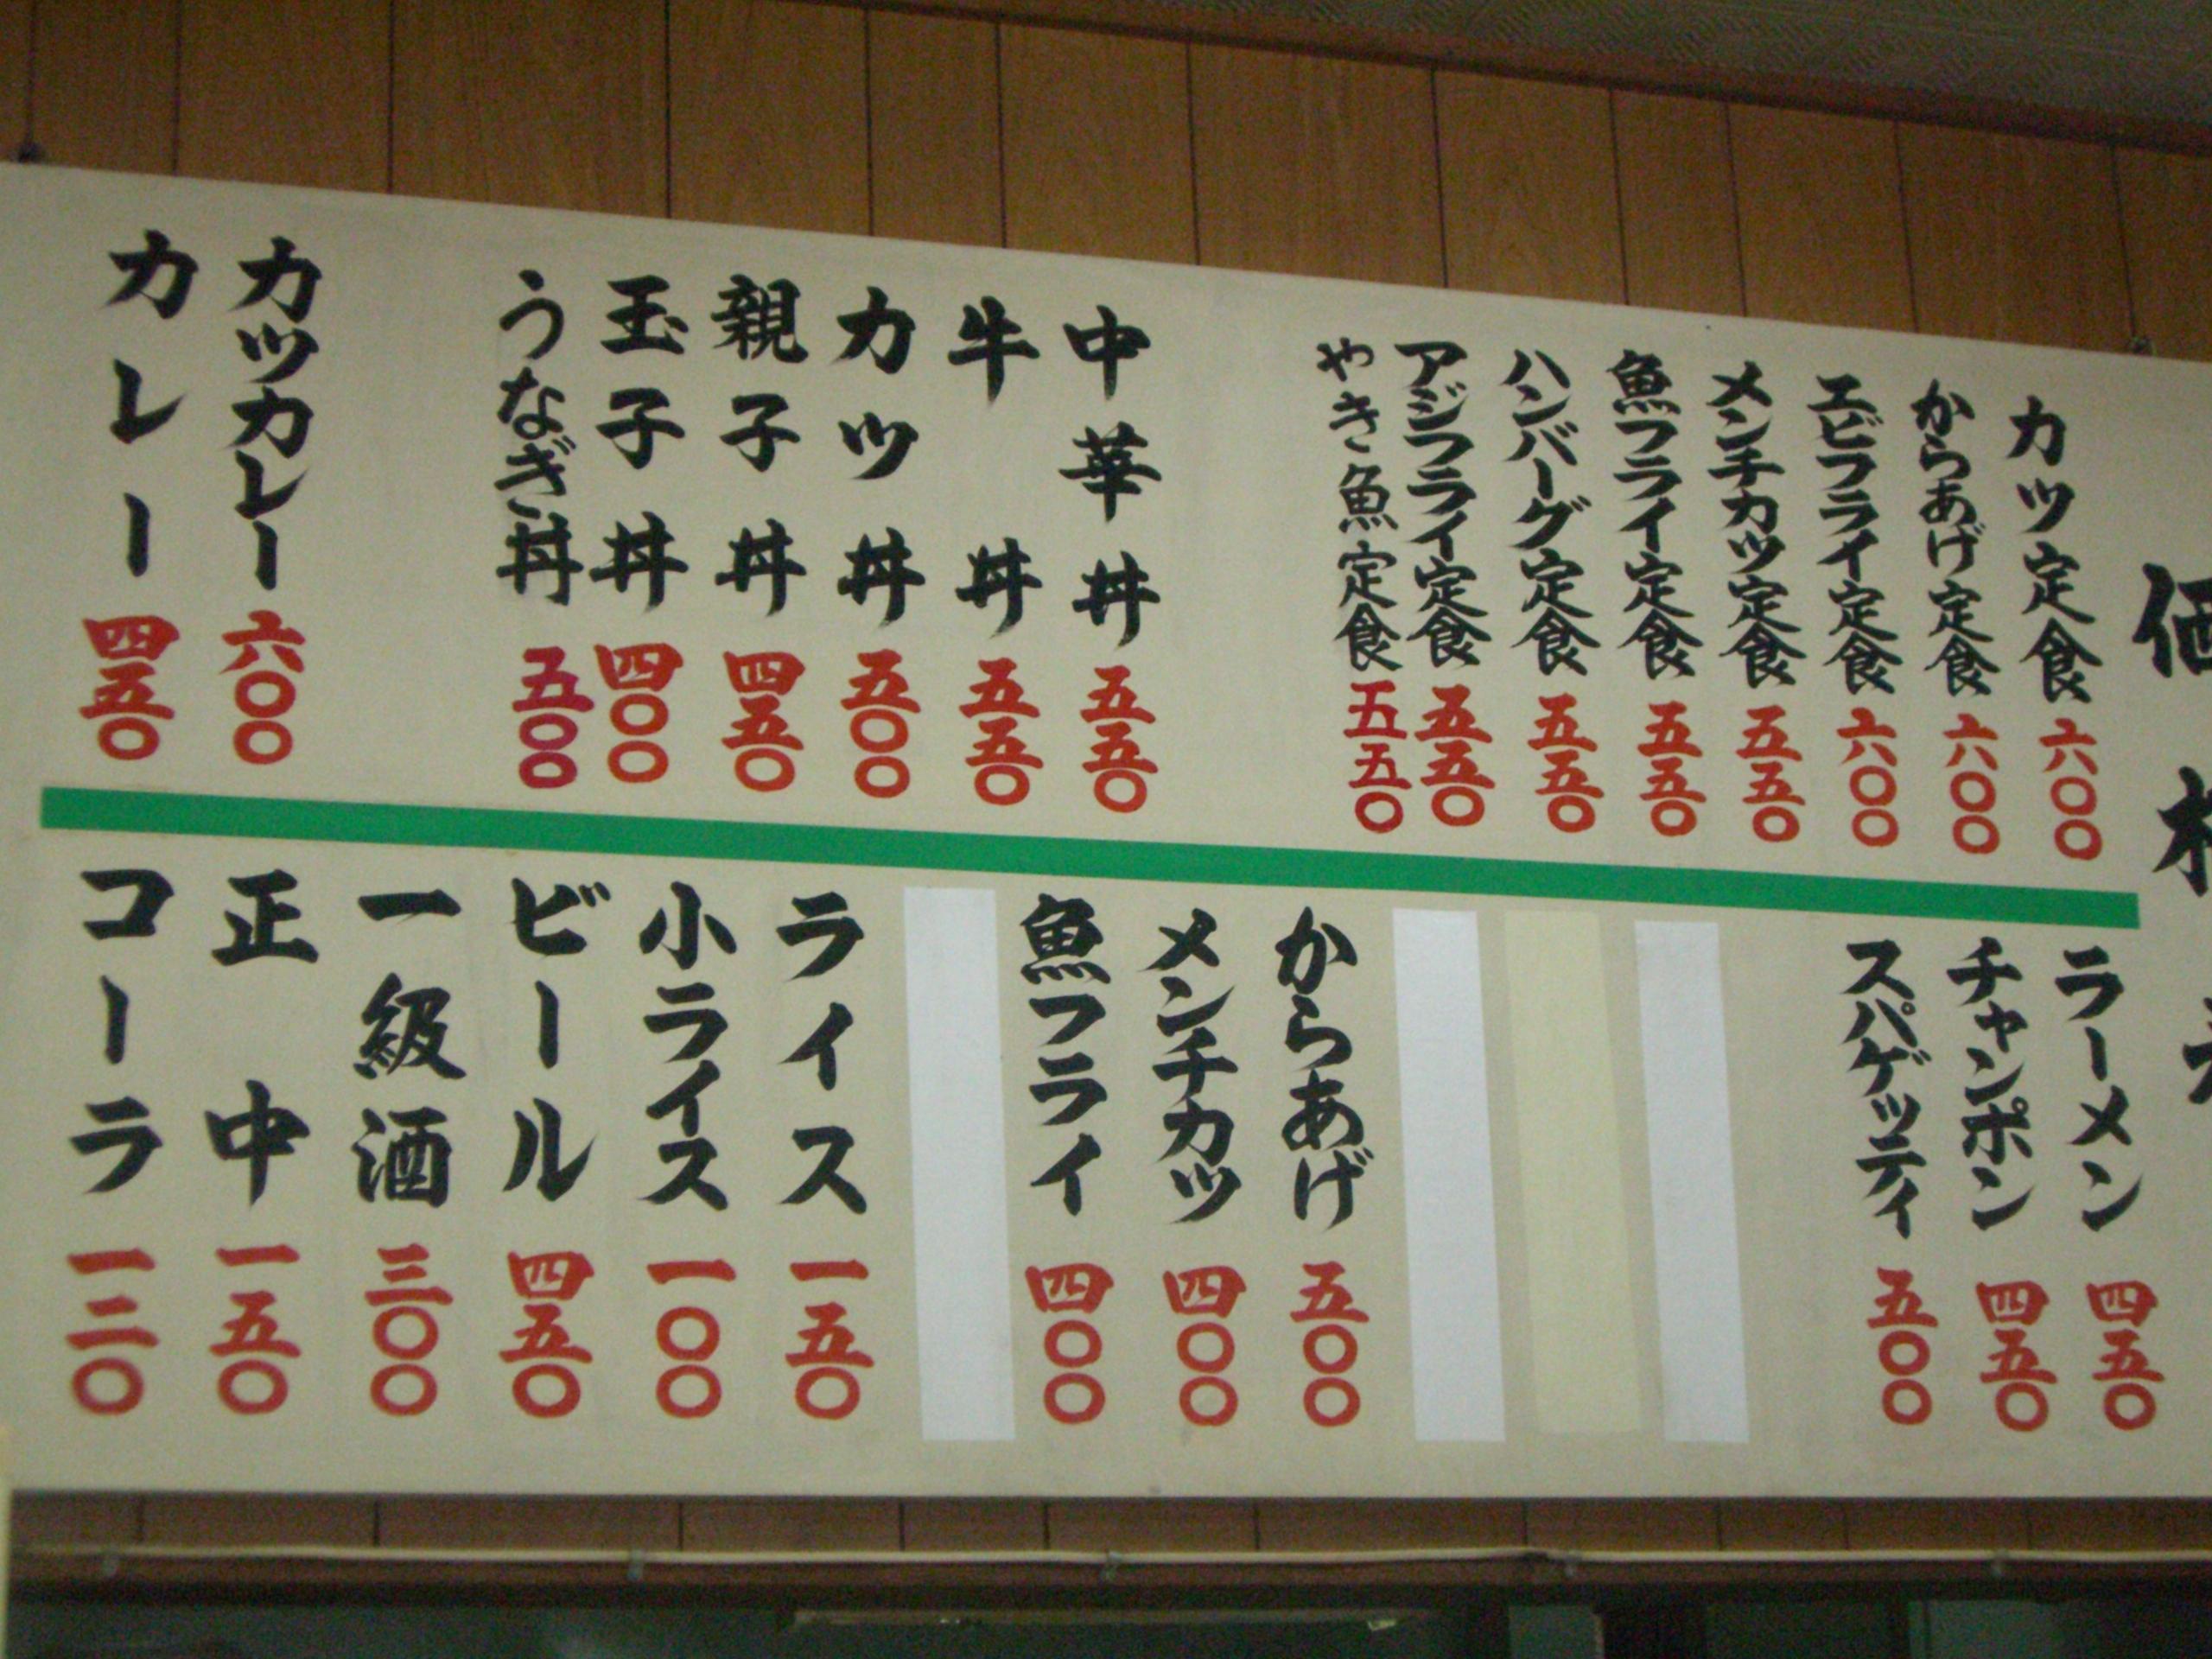 価格表
カツ定食 六〇〇
からあげ定食 六〇〇
エビフライ定食 六〇〇
メンチカツ定食 五五〇
魚フライ定食 五五〇
ハンバーグ定食 五五〇
アジフライ定食 五五〇
やき魚定食 五五〇
中華丼 五五〇
牛丼 五五〇
カツ丼 五〇〇
親子丼 四五〇
玉子丼 四〇〇
うなぎ丼 五〇〇
カツカレー 六〇〇
カレー 四五〇
ラーメン 四五〇
チャンポン 四五〇
スパゲッティ 五〇〇
からあげ 五〇〇
メンチカツ 四〇〇
魚フライ 四〇〇
ライス 一五〇
小ライス 一〇〇
ビール 四五〇
一級酒 三〇〇
正中 一五〇
コーラ 一二〇